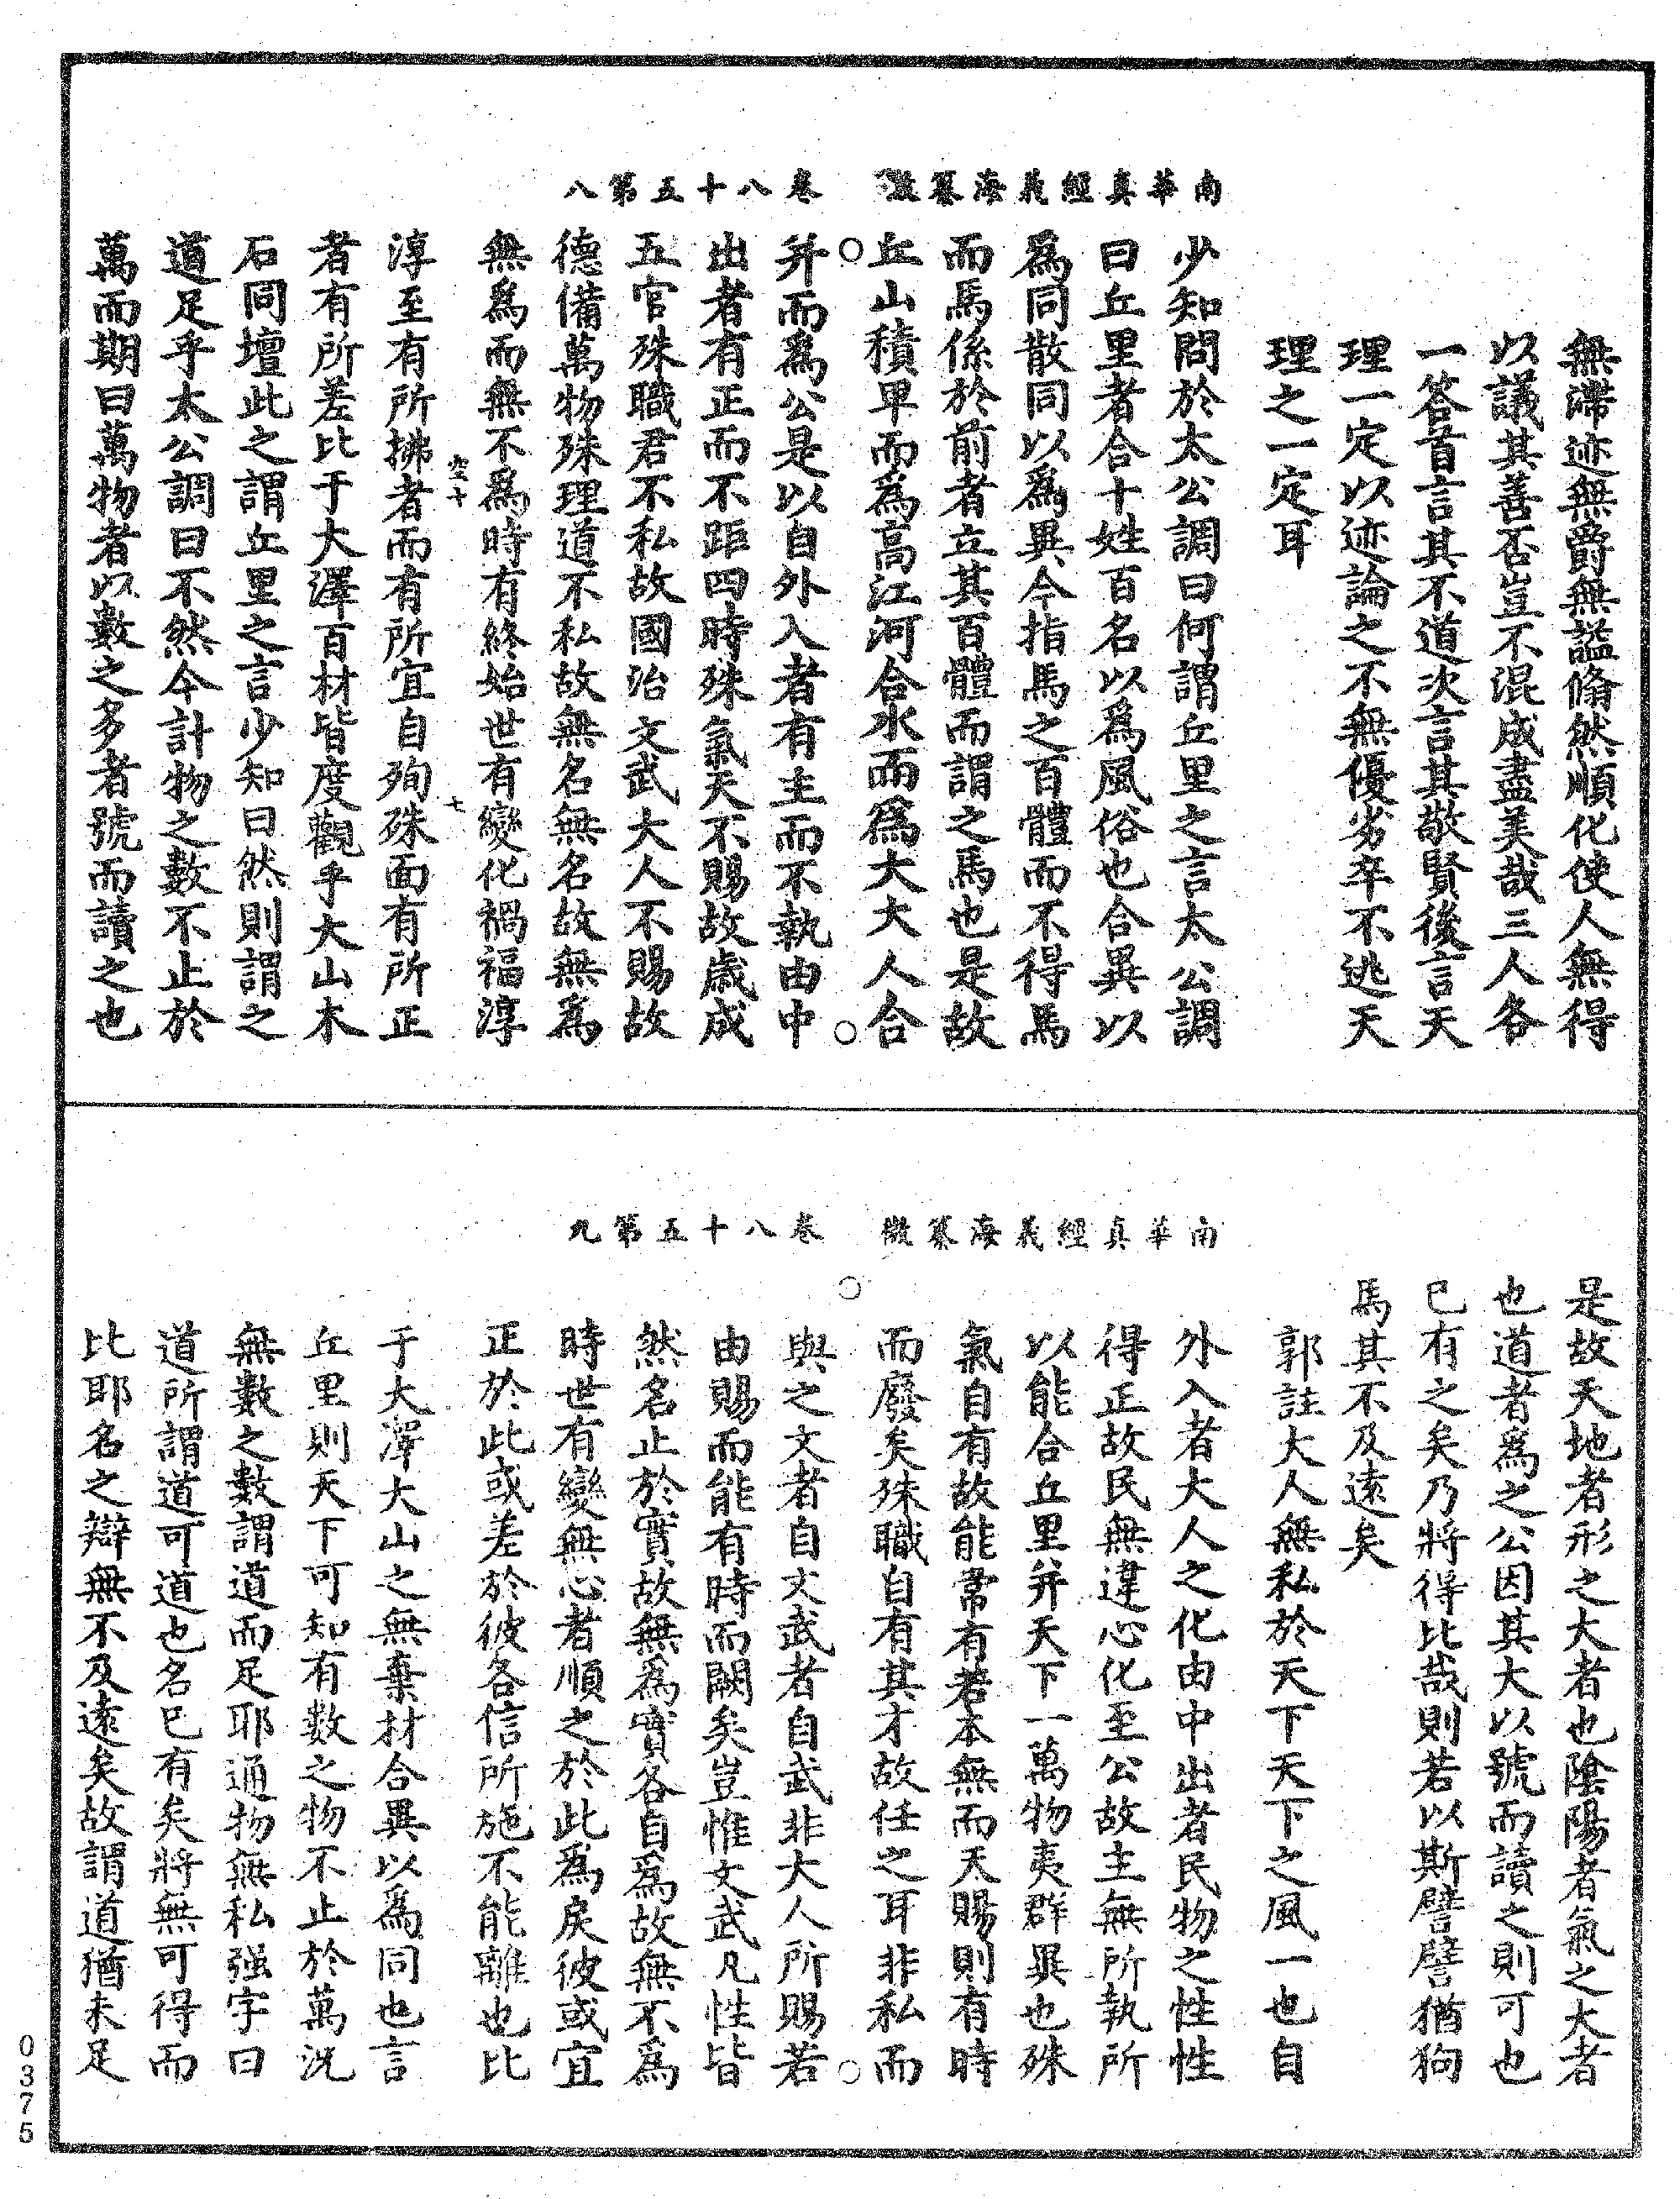 南華真經義海纂微　卷八十五第八
無滯迹無爵無謚翛然順化使人無得
以議其善否豈不混成盡美哉三人各
一答首言其不道次言其敬賢後言天
理一定以迹論之不無優劣卒不逃天
理之一定耳
少知問於太公調曰何謂丘里之言太公調
曰丘里者合十姓百名以爲風俗也合異以
爲同散同以爲異今指馬之百體而不得馬
而馬係於前者立其百體而謂之馬也是故
丘山積卑而爲高江河合水而爲大大人合
并而爲公是以自外入者有主而不執由中
出者有正而不距四時殊氣天不賜故歲成
五官殊職君不私故國治文武大人不賜故
德備萬物殊理道不私故無名無名故無爲
無爲而無不爲時有終始世有變化禍福淳
淳至有所拂者而有所宜自殉殊面有所正
者有所差比于大澤百材皆度觀乎大山木
石同壇此之謂丘里之言少知曰然則謂之
道足乎太公調曰不然今計物之數不止於
萬而期曰萬物者以數之多者號而讀之也
南華真經義海纂微　卷八十五第九
是故天地者形之大者也陰陽者氣之大者
也道者爲之公因其大以號而讀之則可也
已有之矣乃將得比哉則若以斯譬譬猶狗
馬其不及遠矣
郭註大人無私於天下天下之風一也自
外入者大人之化由中出者民物之性性
得正故民無違心化至公故主無所執所
以能合丘里并天下一萬物夷群異也殊
氣自有故能常有若本無而天賜則有時
而廢矣殊職自有其才故任之耳非私而
與之文者自文武者自武非大人所賜若
由賜而能有時而闕矣豈惟文武凡性皆
然名止於實故無爲實各自爲故無不爲
時世有變無心者順之於此爲戾彼或宜
正於此或差於彼各信所施不能離也比
于大澤大山之無棄材合異以爲同也言
丘里則天下可知有數之物不止於萬況
無數之數謂道而足耶通物無私强字曰
道所謂道可道也名已有矣將無可得而
比耶名之辯無不及遠矣故謂道猶未足
0375